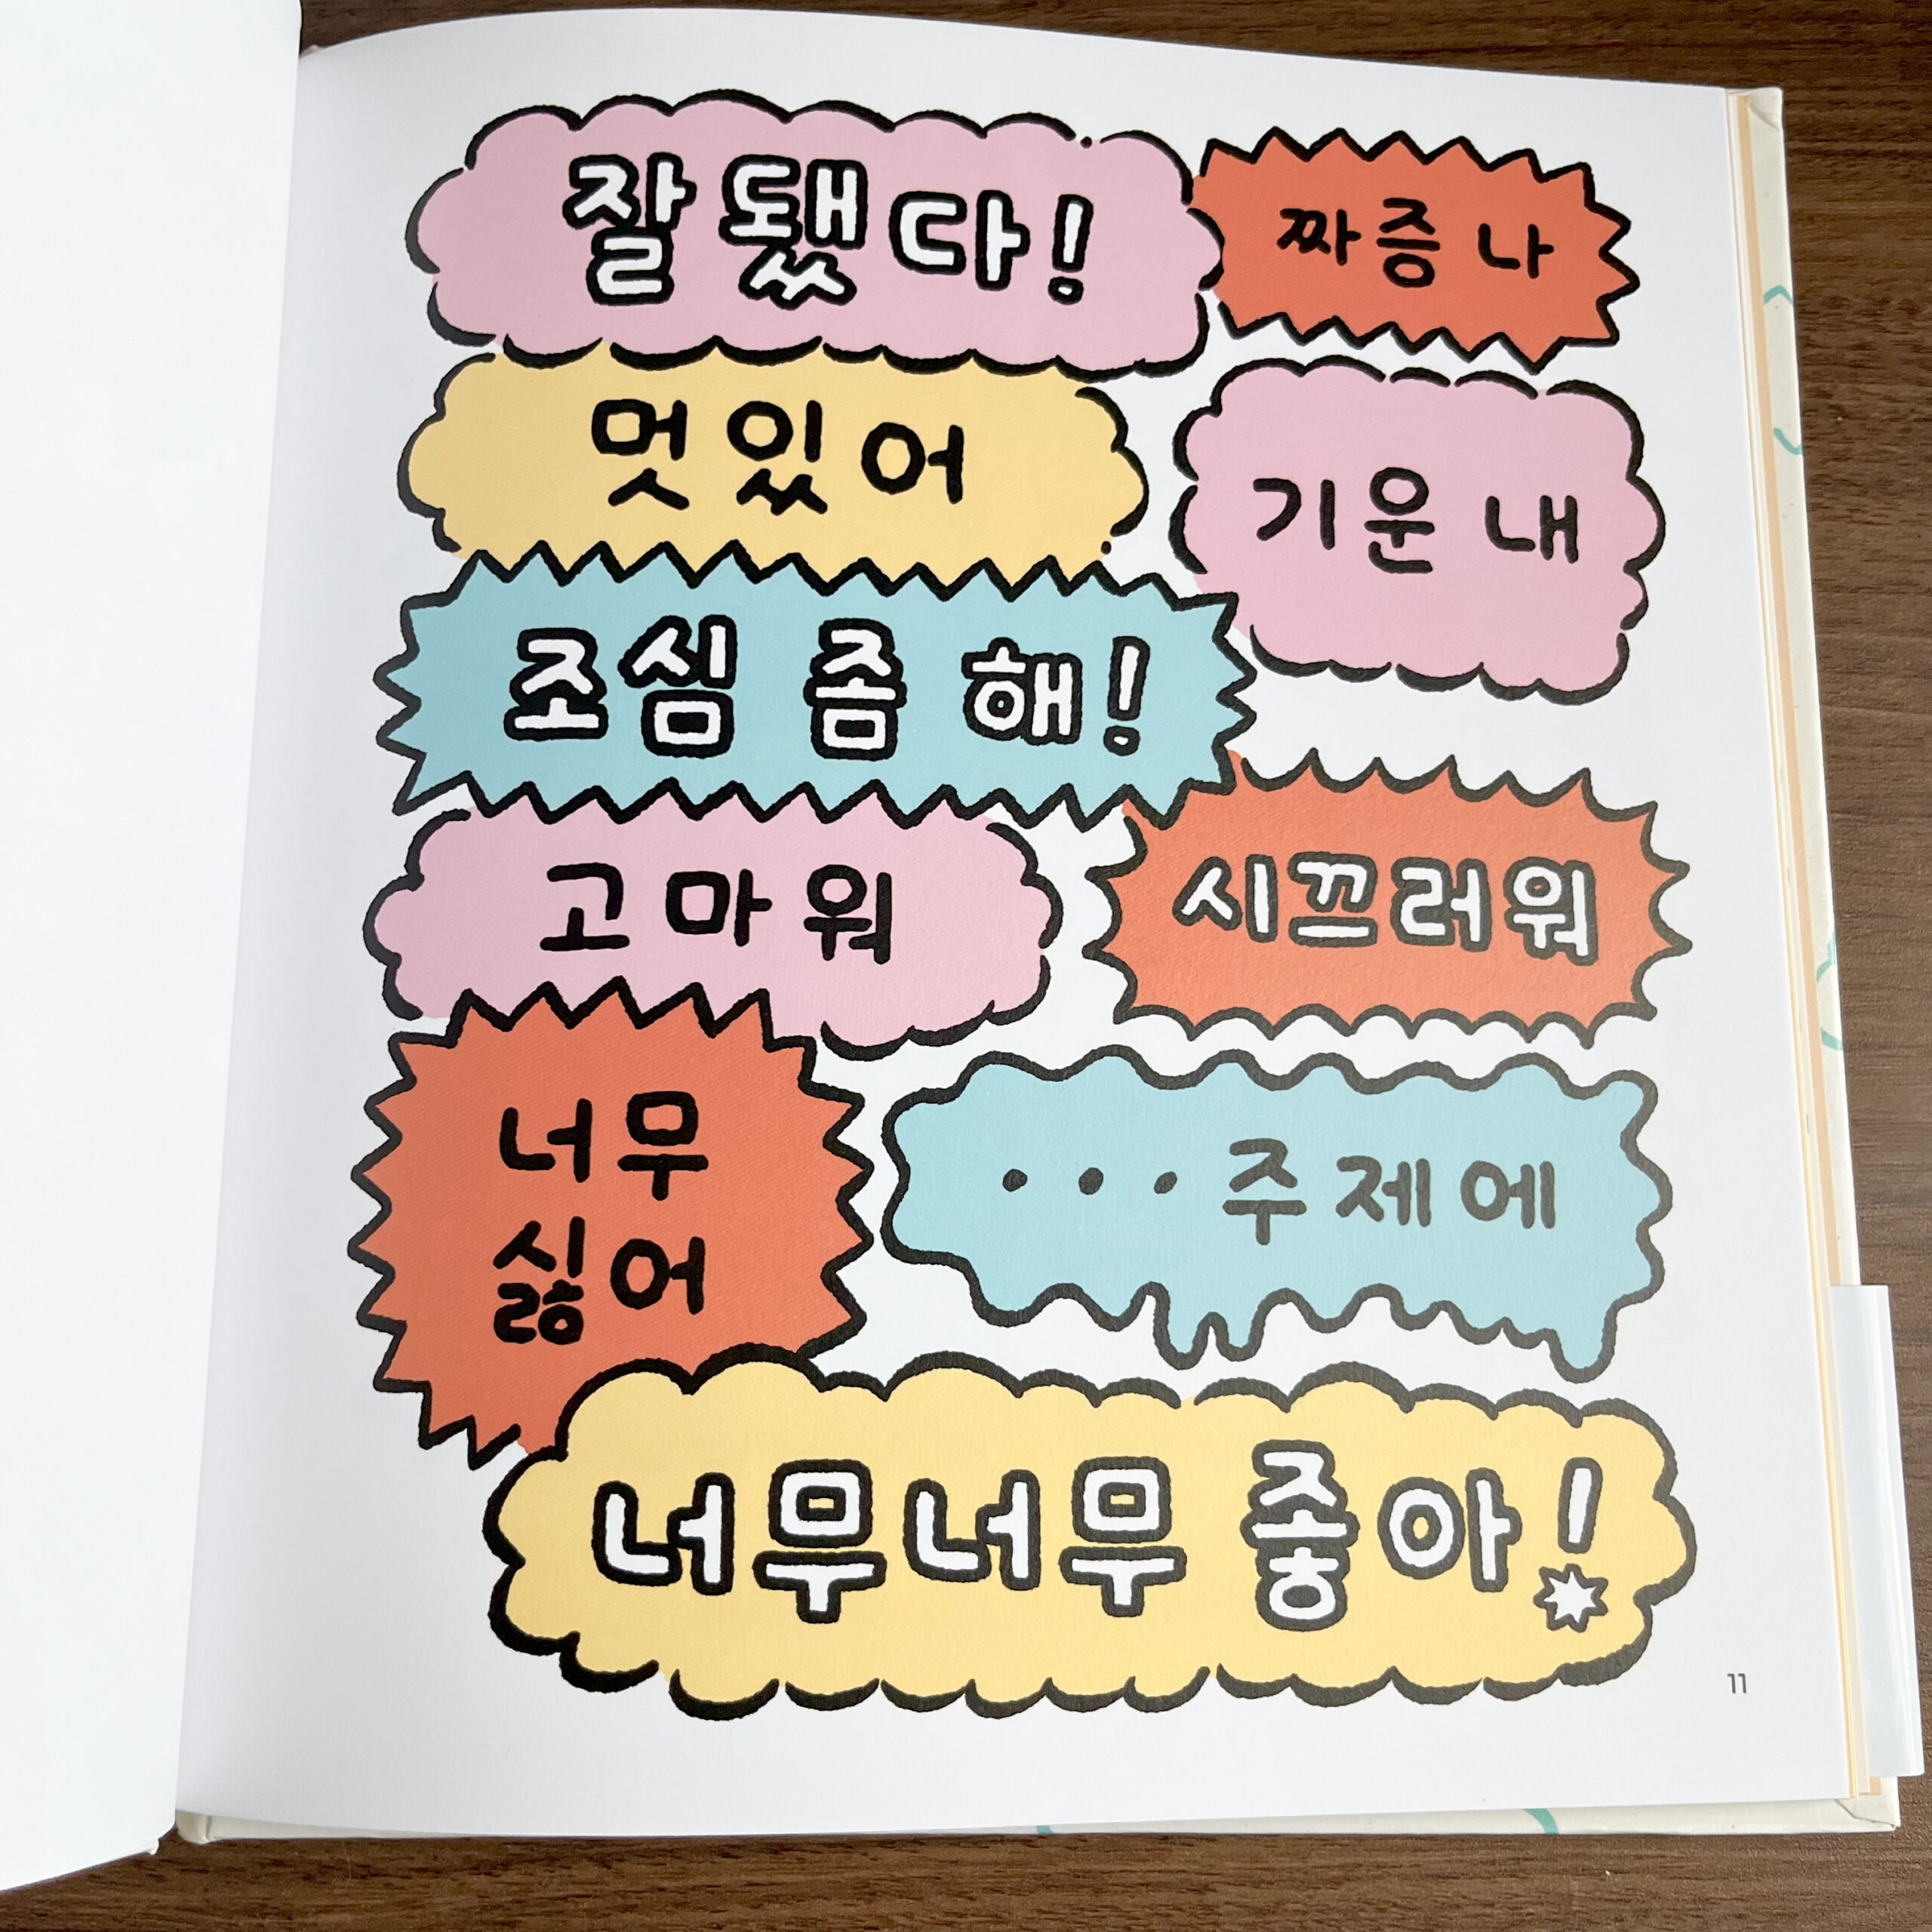 잘됐다!
짜증나
멋있어
기운 내
조심 좀 해!
고마워
시끄러워
너무
싫어
...주제에
너무너무 좋아!
11